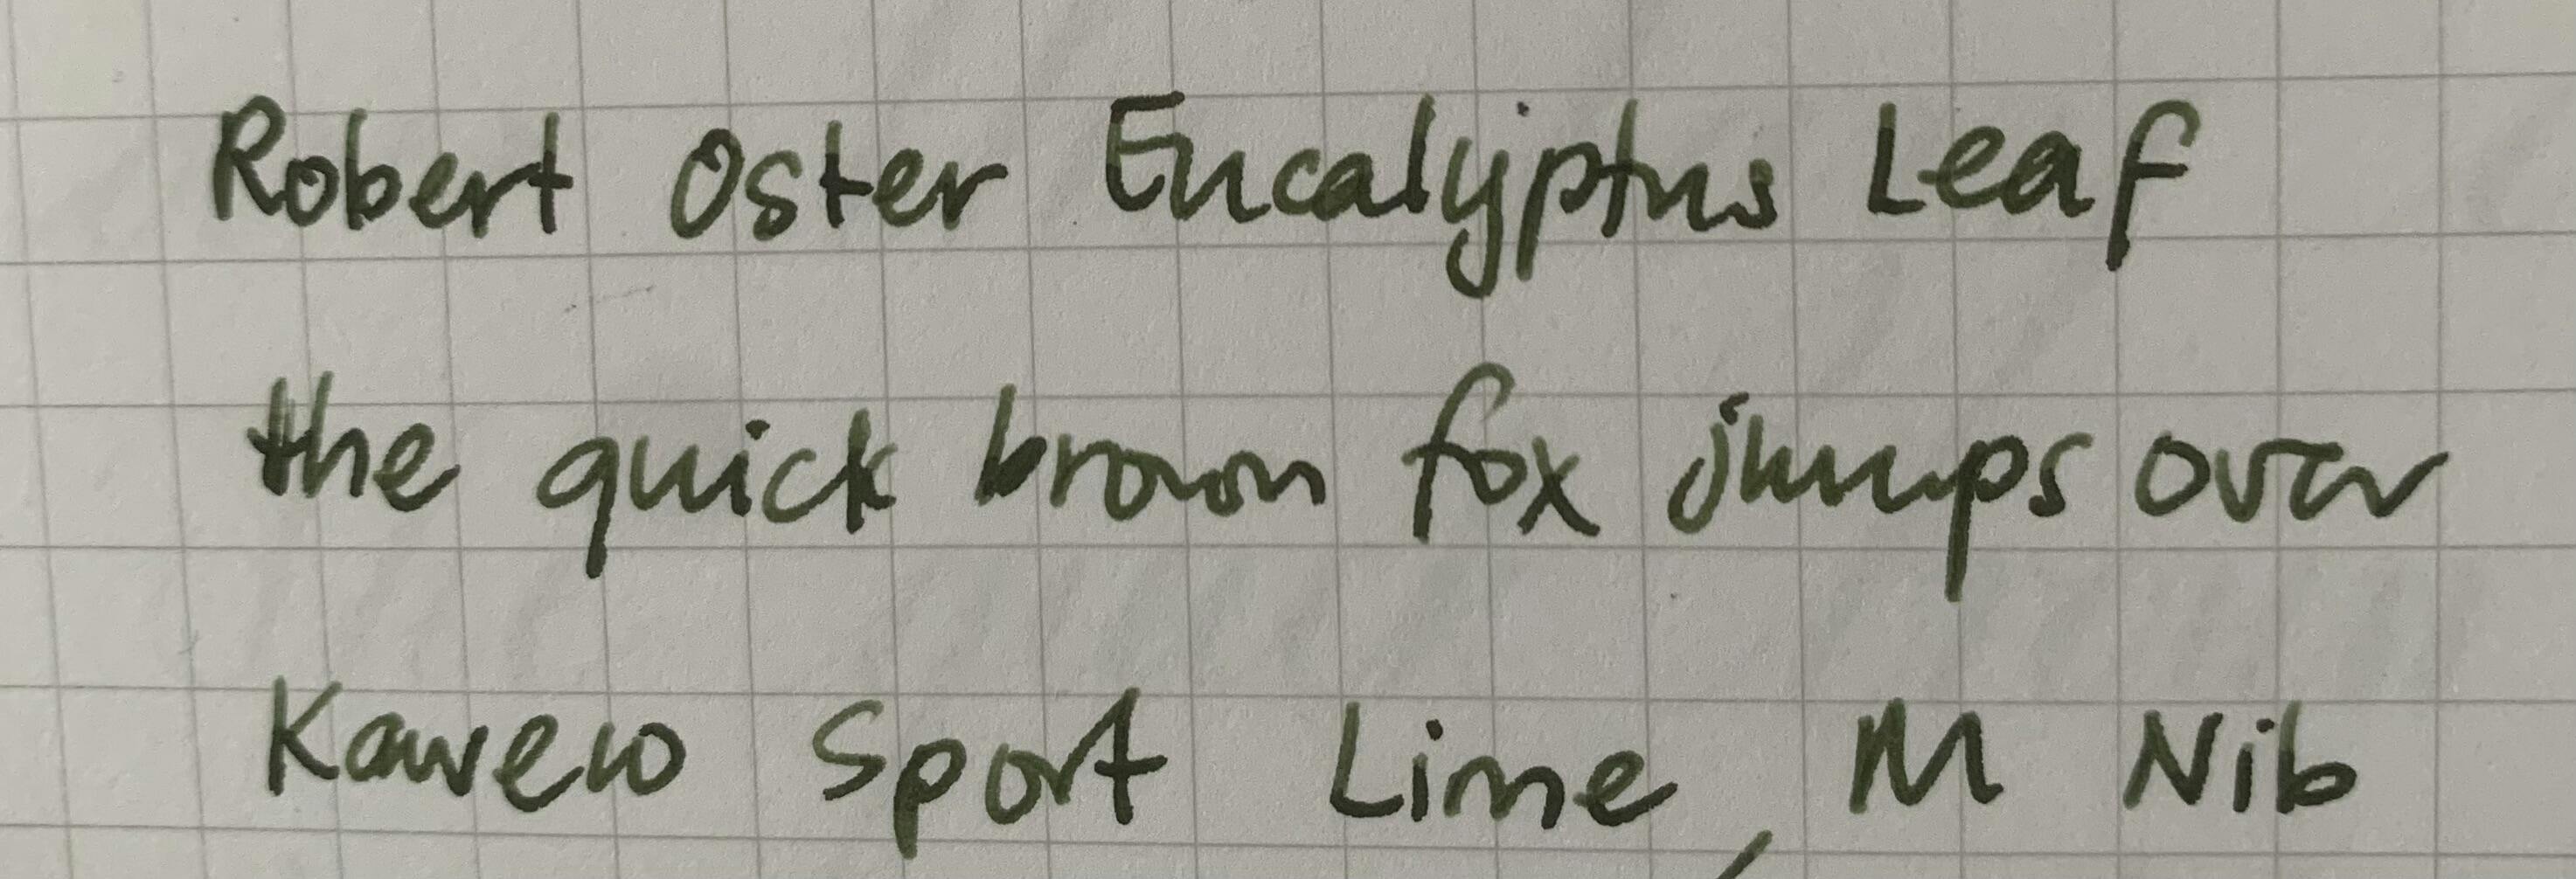 Robert Oster Eucalyptus Leaf
the quick brown fox jumps over
Kaweco Sport Lime, M Nib